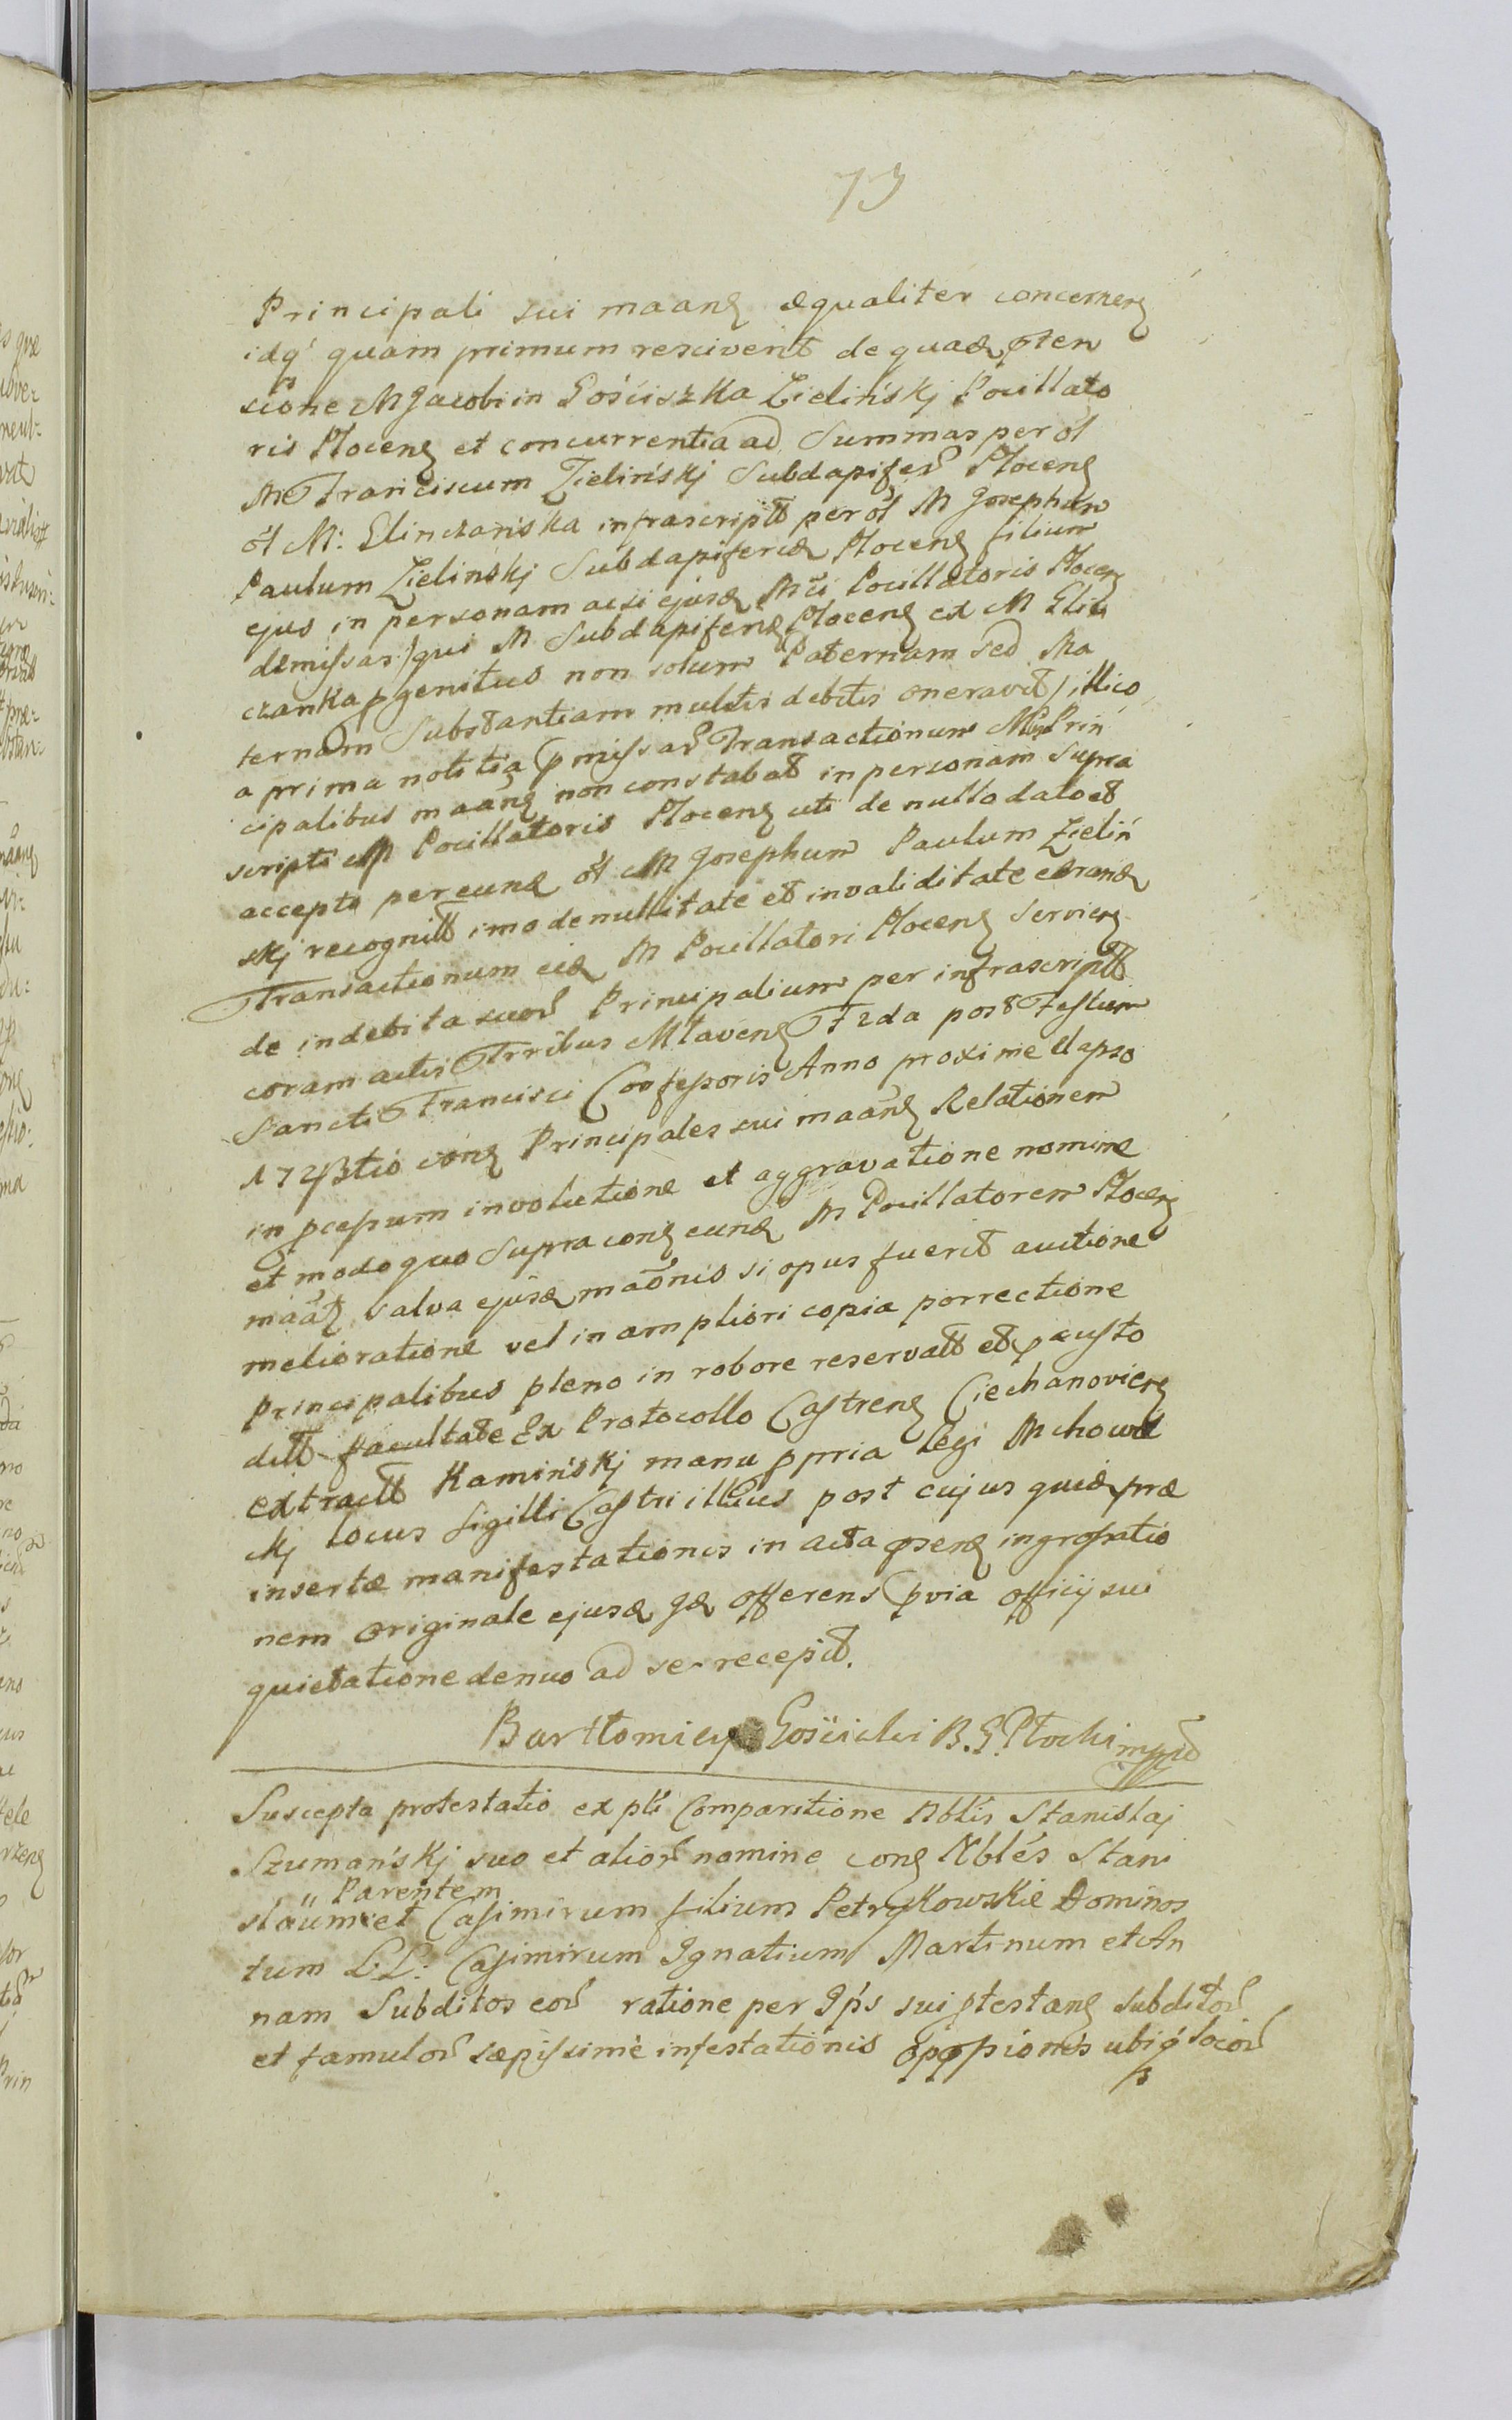 73
Principali sui maanȝ æqualiter concernenȝ
idq́ quam primum resciverit de quadā pten
sione M Jacobi in Gościszka Zielińskj Pocillato
ris Plocenȝ et concurrentia ad Summas per ol
M Franciscum Zielińskj Subdapifer̃ Plocenȝ
ol M: Elinczanska infrascript per ol M Josephum
Paulum Zielinskj Subdapiferid Plocenȝ filium
ejus in personam acsi ejusd Mci Pocillatoris Plocenȝ
demissas/qui M Subdapiferid Plocenȝ ex M Elin
czanka pgenitus non solum Paternam sed Ma
ternam Substantiam multis debitis oneravit/illico
a prima notitia pmissar̃ Transactionum Mcis Prin
cipalibus maanȝ non constabat in personam supra
scripti M Pocillatoris Plocenȝ uti de nullo dato et
accepto per eund ol M Josephum Paulum Zieliń
skj recognit imo de nullitate et invaliditate earund
Transactionum eid M Pocillatori Plocenȝ servienȝ
de indebita suor̃ Principalium per infrascript
coram actis Trribus Mlavenȝ F 2da post Festum
Sancti Francisci Confessoris Anno proxime elapso
172ptio conȝ Principales sui maanȝ Relationem
in pcessum involutione et aggravatione nomine
et modo quo Supra conȝ eund M Pocillatorem Plocenȝ
maat salva ejusd maonis si opus fuerit auctione
melioratione vel in ampliori copia porrectione
Principalibus pleno in robore reservat et p custo
dit facultate Ex Protocollo Castrenȝ Ciechanovienȝ
extract Kamińskj manu ppria legi Mchowc
kj locus Sigilli Castri illius post cujus quid præ
insertæ manifestationis in acta psenȝ ingrossatio
nem originale ejusd gd offerens pvia officij sui
quietatione denuo ad se recepit.
Bartłomiey Gościcki B. G. Płocki mpp
Suscepta protestatio ex pli Comparitione Nblis Stanislaj
Szumańskj suo et alior̃ nomine conȝ Nblés Stani
Parentem
slaum et Casimirum filium Petrykowskie Dominos
tum LL: Casimirum Ignatium Martinum et An
nam Subditos eor̃ ratione per Ip̃s sui ptestanȝ subditor̃
et famulor̃ sæpissime infestationis oppssionis ubiq́ locor̃